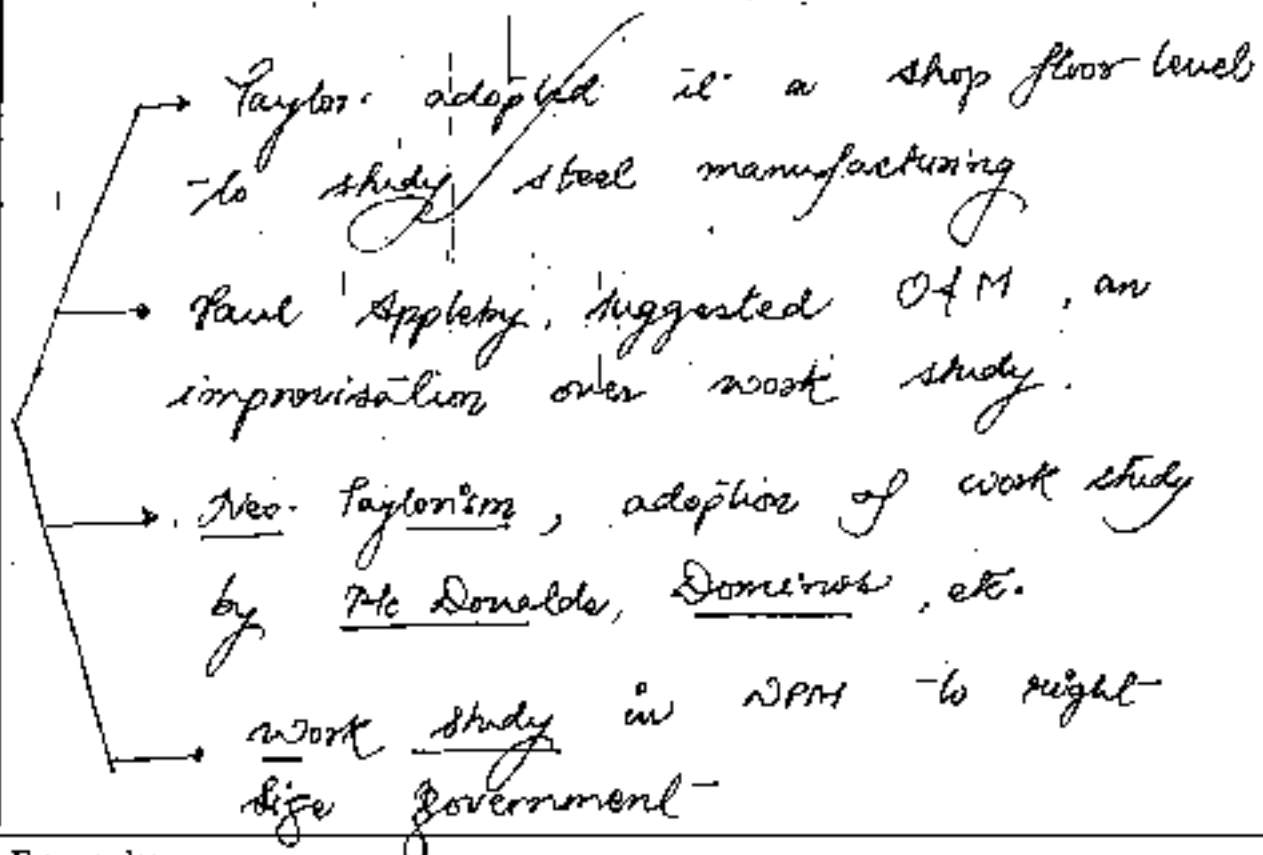 Taylor adopted it a shop floor level
to study steel manufacturing
Paul Appleby, suggested O&M, an
improvisation over work study.
Neo-Taylorism, adoption of work study
by Mc Donalds, Dominos, etc.
work study in NPM to right
size government